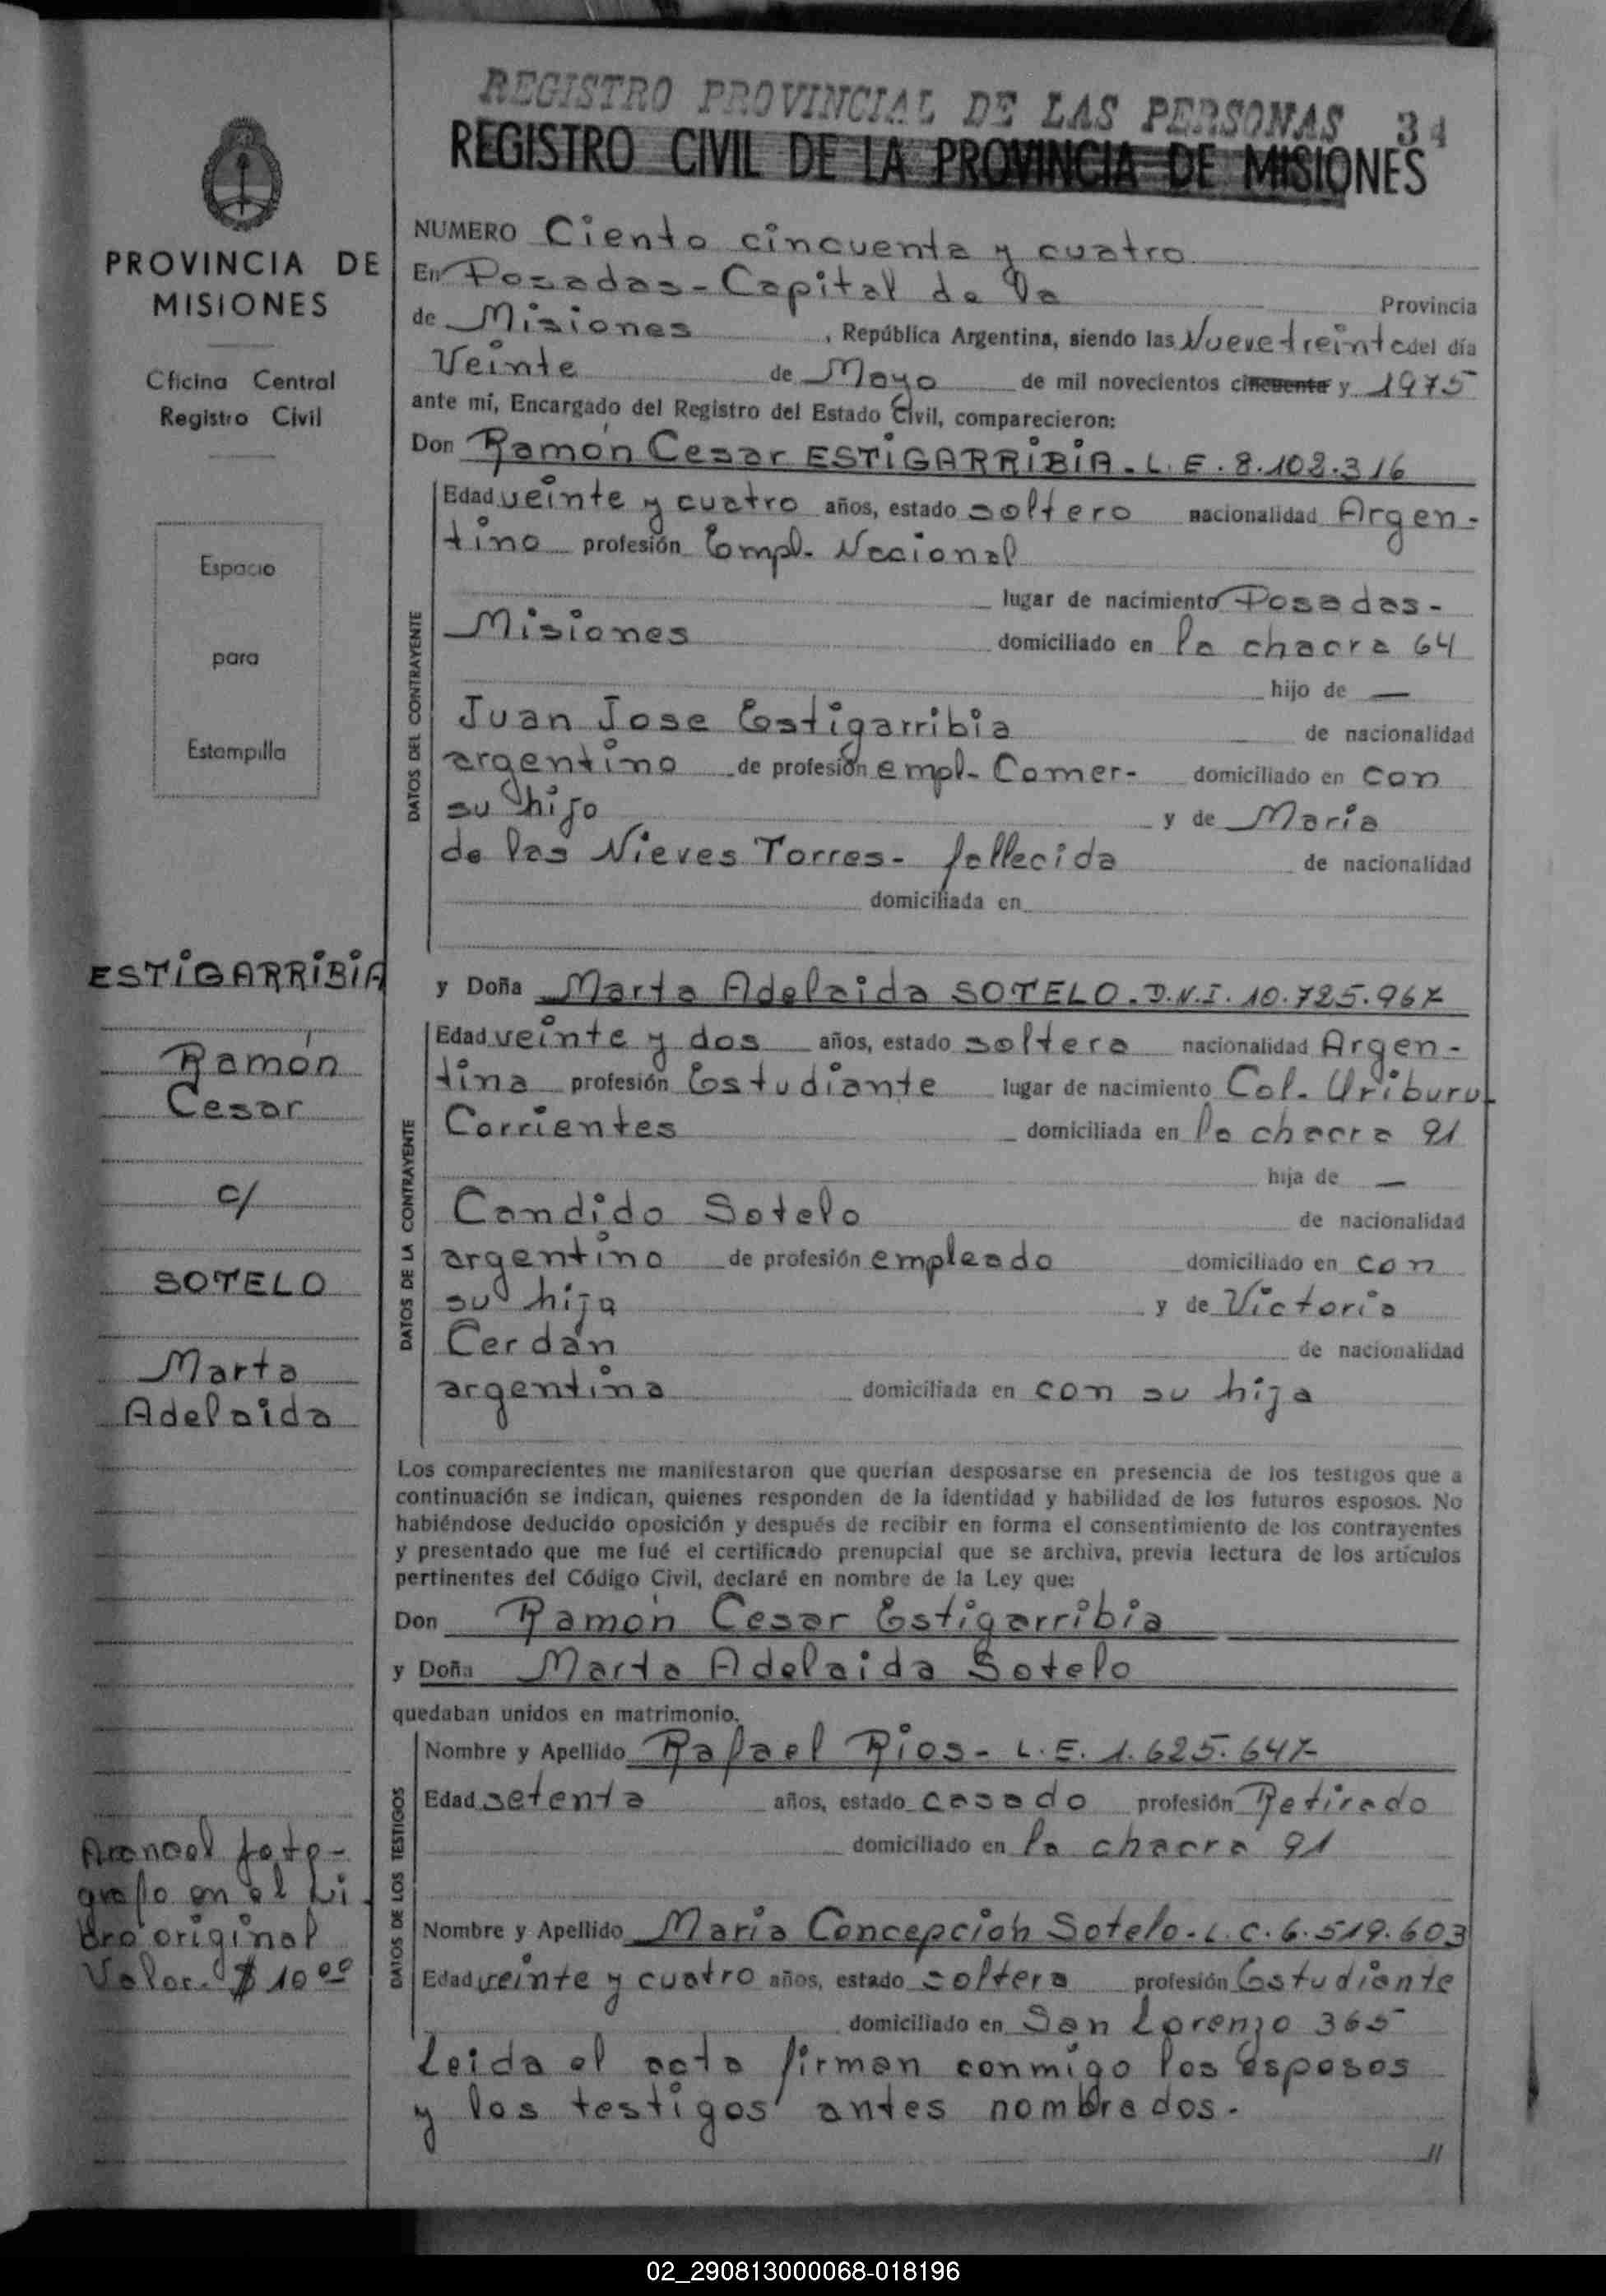 REGISTRO PROVINCIAL DE LAS PERSONAS 34
REGISTRO CIVIL DE LA PROVINCIA DE MISIONES
PROVINCIA DE
MISIONES
Oficina Central
Registro Civil
Espacio
para
Estampilla
ESTIGARRIBIA
Ramón
Cesar
c/
SOTELO
Marta
Adelaida
Arancel foto-
grafo en el Li
bro original
Valor $ 10⁰⁰
NUMERO Ciento cincuenta y cuatro
En Posadas - Capital de la Provincia
de Misiones, República Argentina, siendo las Nueve treinta del día
Veinte de Mayo de mil novecientos cincuenta y 1975
ante mí, Encargado del Registro del Estado Civil, comparecieron:
Don Ramón Cesar ESTIGARRIBIA - L.E. 8.102.316
DATOS DEL CONTRAYENTE
Edad veinte y cuatro años, estado soltero nacionalidad Argen-
tino profesión Empl. Nacional
lugar de nacimiento Posadas -
Misiones domiciliado en la chacra 64
hijo de —
Juan Jose Estigarribia de nacionalidad
argentino de profesión empl. Comer- domiciliado en con
su hijo y de Maria
de las Nieves Torres - fallecida de nacionalidad
domiciliada en
y Doña Marta Adelaida SOTELO - D.N.I. 10.725.967
DATOS DE LA CONTRAYENTE
Edad veinte y dos años, estado soltera nacionalidad Argen-
tina profesión Estudiante lugar de nacimiento Col. Uriburu-
Corrientes domiciliada en la chacra 91
hija de —
Candido Sotelo de nacionalidad
argentino de profesión empleado domiciliado en con
su hija y de Victoria
Cerdán de nacionalidad
argentina domiciliada en con su hija
Los comparecientes me manifestaron que querían desposarse en presencia de los testigos que a
continuación se indican, quienes responden de la identidad y habilidad de los futuros esposos. No
habiéndose deducido oposición y después de recibir en forma el consentimiento de los contrayentes
y presentado que me fué el certificado prenupcial que se archiva, previa lectura de los artículos
pertinentes del Código Civil, declaré en nombre de la Ley que:
Don Ramón Cesar Estigarribia
y Doña Marta Adelaida Sotelo
quedaban unidos en matrimonio.
DATOS DE LOS TESTIGOS
Nombre y Apellido Rafael Rios - L.E. 1.625.647-
Edad setenta años, estado casado profesión Retirado
domiciliado en la chacra 91
Nombre y Apellido Maria Concepción Sotelo - L.C. 6.519.603
Edad veinte y cuatro años, estado soltera profesión Estudiante
domiciliado en San Lorenzo 365
Leida el acta firman conmigo los esposos
y los testigos antes nombrados.
//
02_290813000068-018196